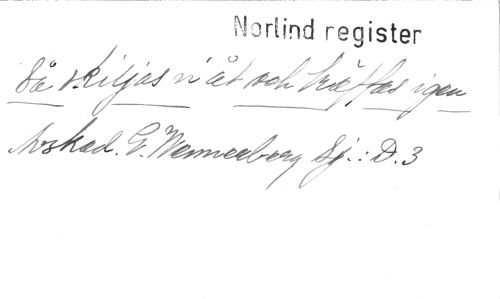 Norlind register
Så skiljas vi åt och träffas igen
Avsked. G. Wennerberg Sj.: D. 3